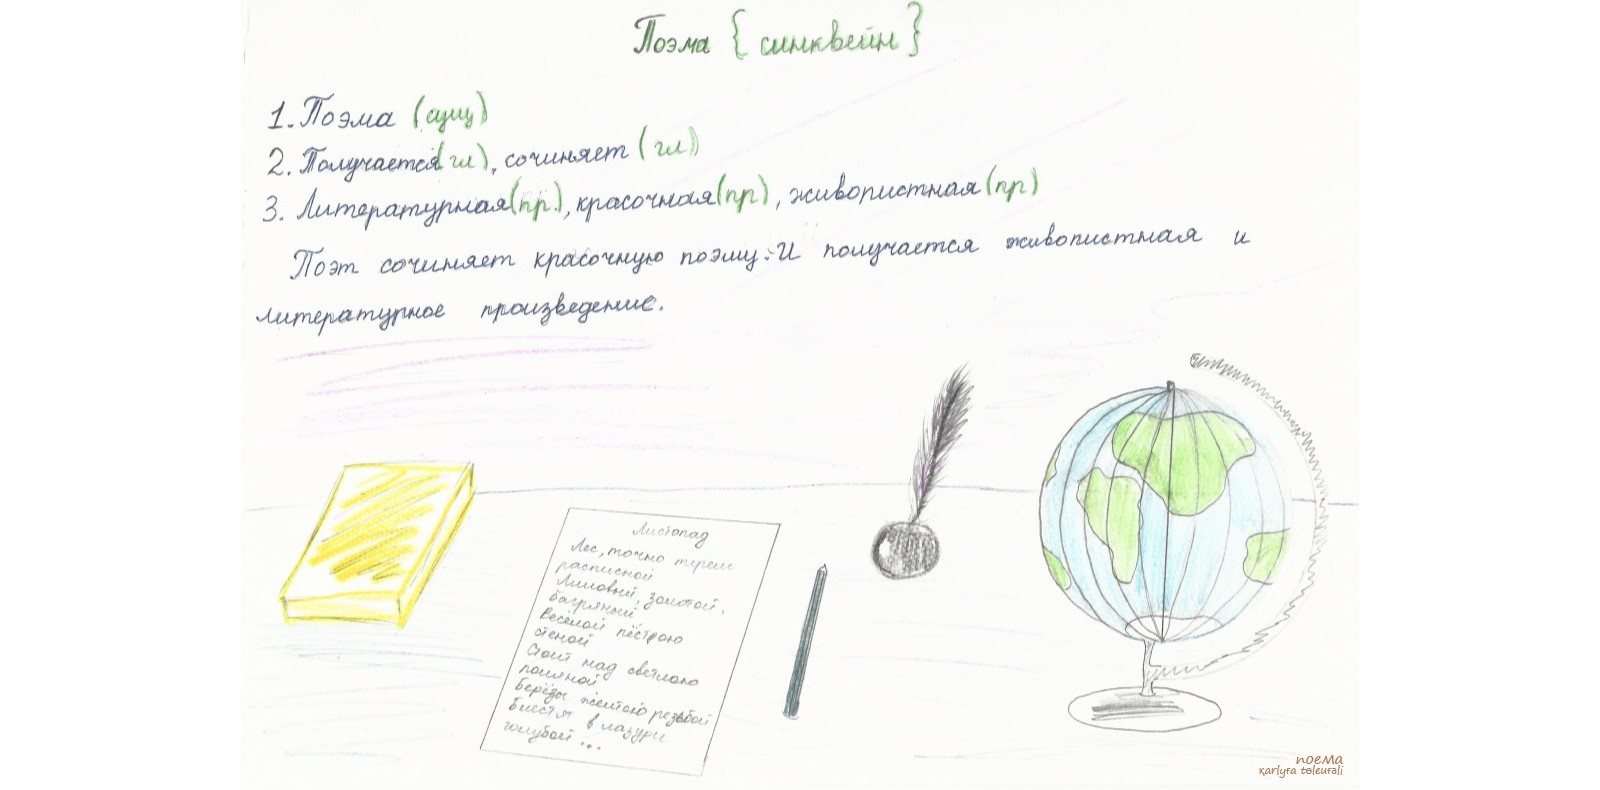 Поэма {синквейн}
1. Поэма (сущ)
2. Получается (гл), сочиняет (гл)
3. Литературная (пр.), красочная (пр), живопистная (пр)
Поэт сочиняет красочную поэму. И получается живопистная и
литературное произведение.
Листопад
Лес, точно терем
расписной
Лиловый, золотой,
багряный,
Весёлой пёстрою
стеной
Стоит над светлою
поляной
Берёзы желтою резьбой
Блестят в лазури
голубой ...
поема
qarlyǵa tóleuǵali